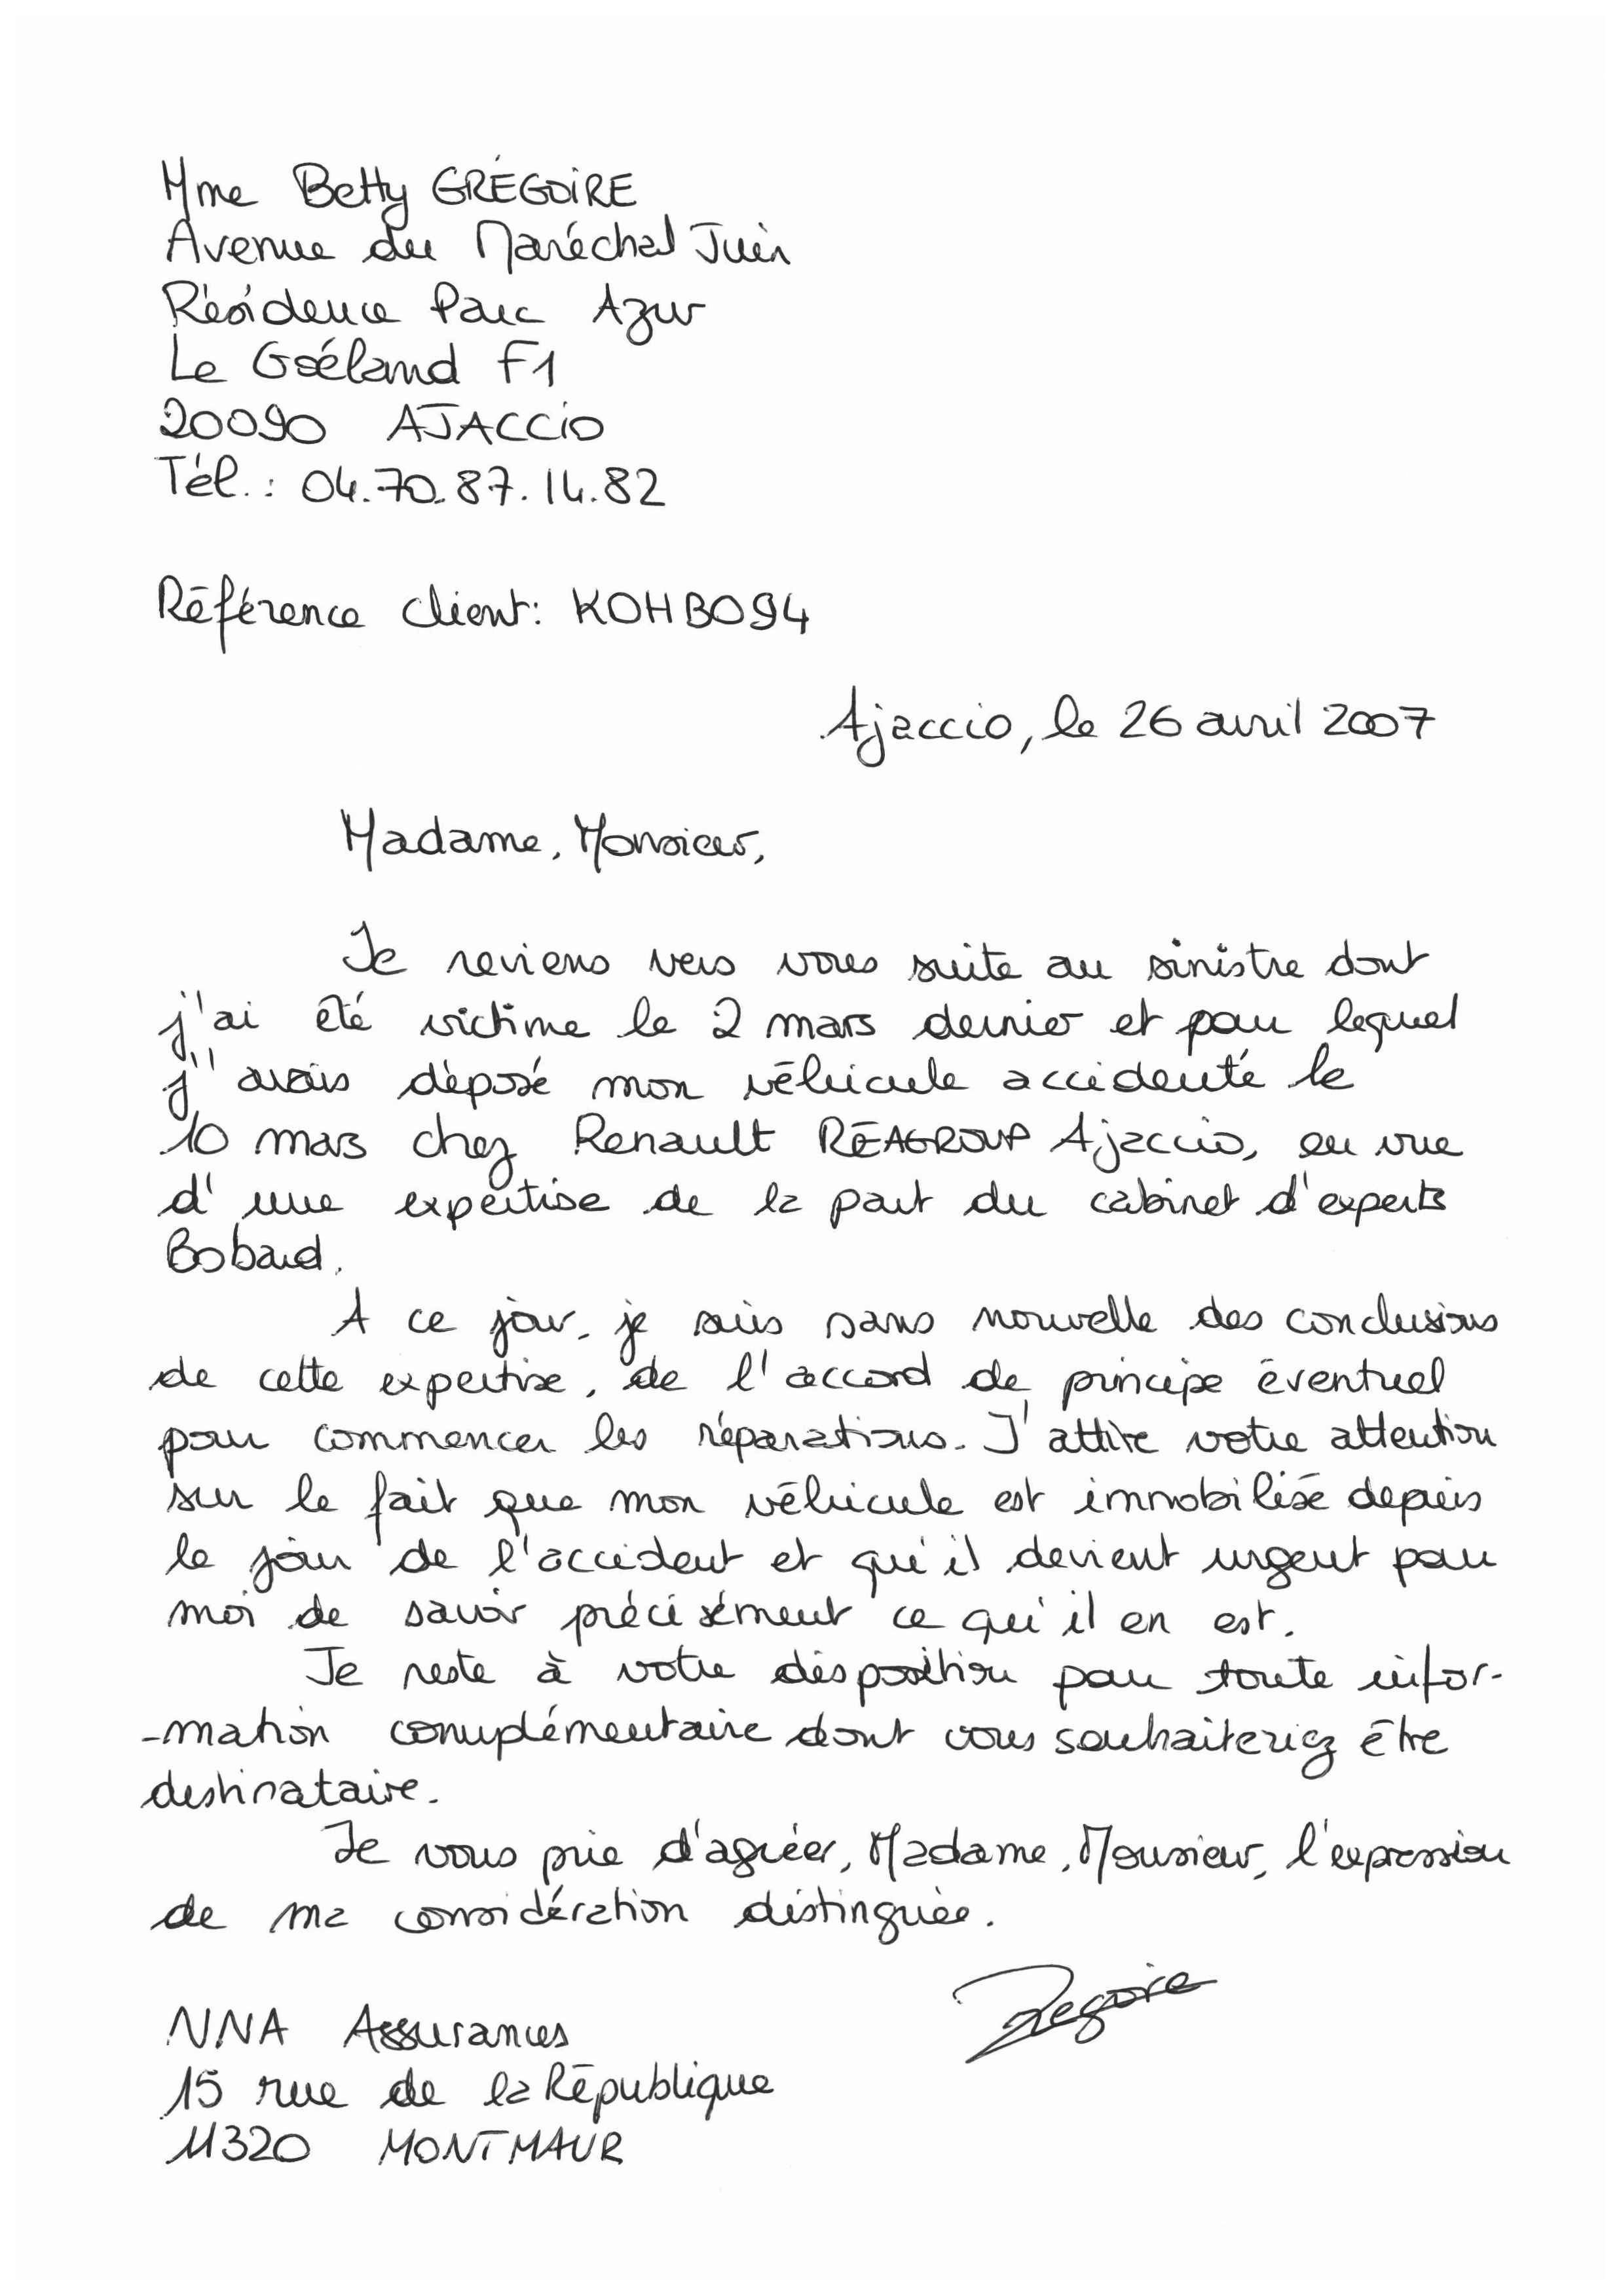 Mme Betty GRÉGOIRE
Avenue du Maréchal Juin
Résidence Parc Azur
Le Goéland F1
20090 AJACCIO
Tél.: 04.70.87.14.82
Référence client: KOHBO94
Ajaccio, le 26 avril 2007
Madame, Monsieur,
Je reviens vers vous suite au sinistre dont
j'ai été victime le 2 mars dernier et pour lequel
j'avais déposé mon véhicule accidenté le
10 mars chez Renault RÉAGROUP Ajaccio, en vue
d'une expertise de la part du cabinet d'experts
Bobard.
A ce jour, je suis sans nouvelle des conclusions
de cette expertise, de l'accord de principe éventuel
pour commencer les réparations. J'attire votre attention
sur le fait que mon véhicule est immobilisé depuis
le jour de l'accident et qu'il devient urgent pour
moi de savoir précisément ce qu'il en est.
Je reste à votre disposition pour toute infor-
-mation complémentaire dont vous souhaiteriez être
destinataire.
Je vous prie d'agréer, Madame, Monsieur, l'expression
de ma considération distinguée.
Gregoire
NNA Assurances
15 rue de la République
11320 MONTMAUR